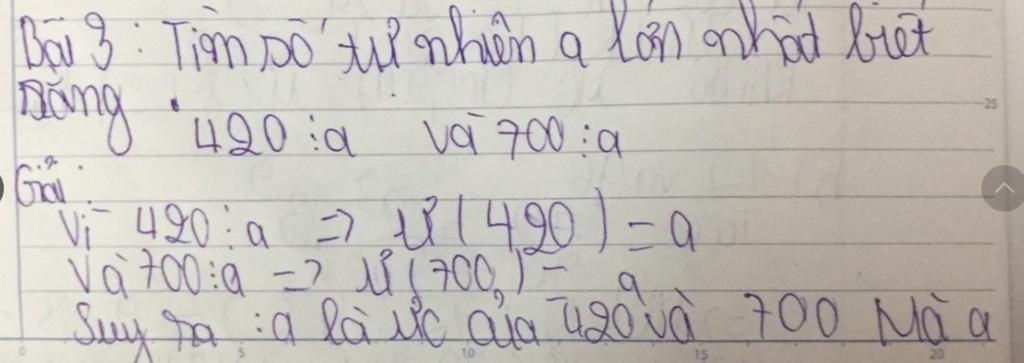 Bài 3 : Tìm số tự nhiên a lớn nhất biết
Rằng
420 ⋮ a và 700 ⋮ a
Giải
Vì 420 ⋮ a => Ư ( 420 ) = a
Và 700 ⋮ a => Ư ( 700 ) = a
Suy ra : a là ưc của 420 và 700 Mà a
25
0 5 10 15 20